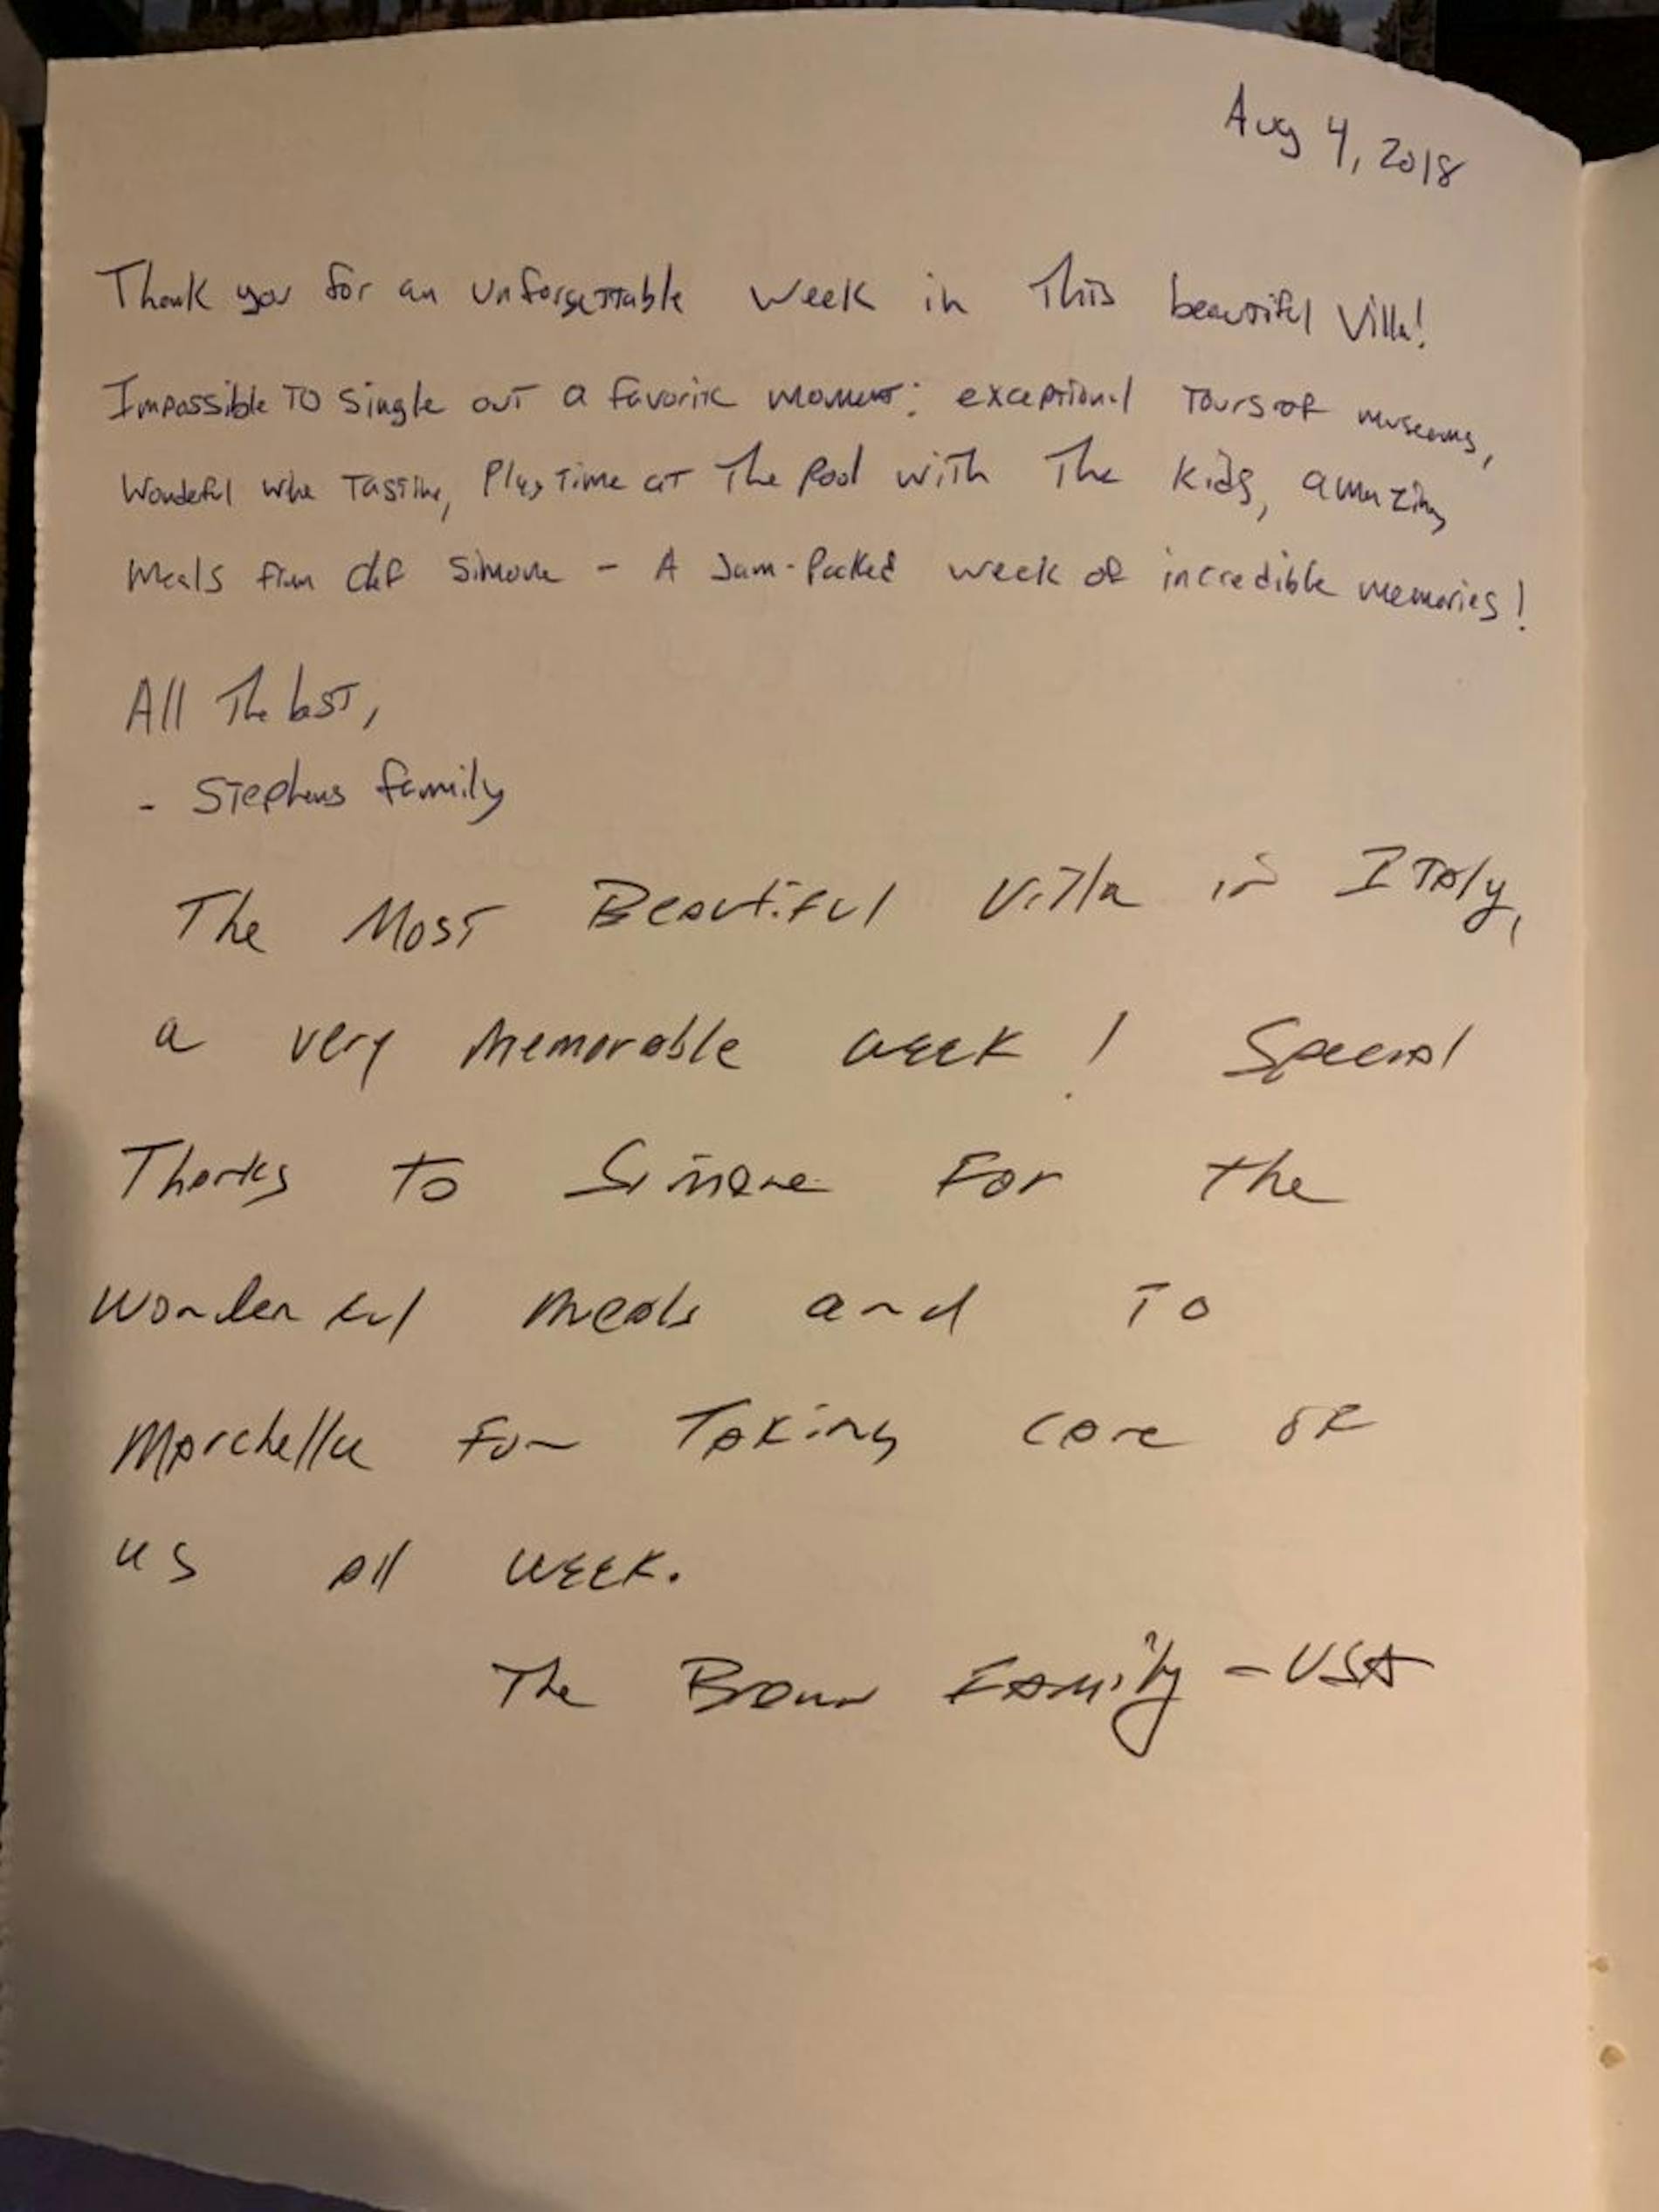 Aug 4, 2018
Thank you for an unforgettable week in This beautiful Villa!
Impossible To Single out a favorite moment: exceptional Tours of museums,
Wonderful wine Tasting, Play Time at The Pool with The Kids, amazing
meals from chef Simone - A Jam-Packed week of incredible memories!
All The best,
- Stephens family
The Most Beautiful Villa in Italy,
a very memorable week! Special
Thanks to Simone For the
wonderful meals and To
Marchella for Taking care of
us all week.
The Brown Family - USA